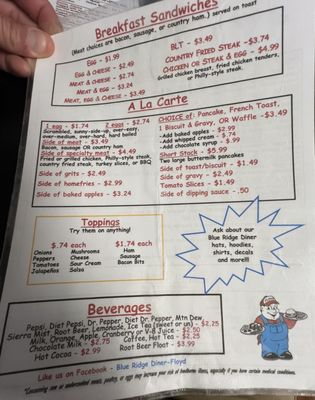 Breakfast Sandwiches
(Meat choices are bacon, sausage, or country ham..) served on toast
Egg - $1.99
Egg & Cheese - $2.49
Meat & Egg - $2.74
Meat & Cheese - $2.74
Meat, Egg & Cheese - $3.49
BLT - $3.49
Country Fried Steak - $3.74
Chicken or Steak & Egg - $4.99
Grilled chicken breast, fried chicken tenders,
or Philly-style steak.
A La Carte
1 egg - $1.74 2 eggs - $2.74
Scrambled, sunny-side-up, over-easy,
over-medium, over-hard, hard boiled
Side of meat - $3.49
Bacon, sausage OR country ham
Side of specialty meat - $4.49
Fried or grilled chicken, Philly-style steak,
country fried steak, turkey slices, or BBQ
Side of grits - $2.49
Side of homefries - $2.99
Side of baked apples - $3.24
CHOICE of: Pancake, French Toast,
1 Biscuit & Gravy, OR Waffle - $3.49
- Add baked apples - $2.99
- Add whipped cream - $.74
- Add chocolate syrup - $.99
Short Stack - $5.99
Two large buttermilk pancakes
Side of toast/biscuit - $1.49
Side of gravy - $2.49
Tomato Slices - $1.49
Side of dipping sauce - .50
Toppings
Try them on anything!
$.74 each
Onions Mushrooms
Peppers Cheese
Tomatoes Sour Cream
Jalapeños Salsa
$1.74 each
Ham
Sausage
Bacon Bits
Ask about our
Blue Ridge Diner
hats, hoodies,
shirts, decals
and more!!
Beverages
Pepsi, Diet Pepsi, Dr. Pepper, Diet Dr. Pepper, Mtn Dew,
Sierra Mist, Root Beer, Lemonade, Ice Tea (sweet or un) - $2.25
Milk, Orange, Apple, Cranberry or V-8 Juice - $2.50
Chocolate Milk - $2.75 Coffee, Hot Tea - $2.25
Hot Cocoa - $2.99 Root Beer Float - $3.99
Like us on Facebook - Blue Ridge Diner-Floyd
*Consuming raw or undercooked meats, poultry, or eggs may increase your risk of foodborne illness, especially if you have certain medical conditions.